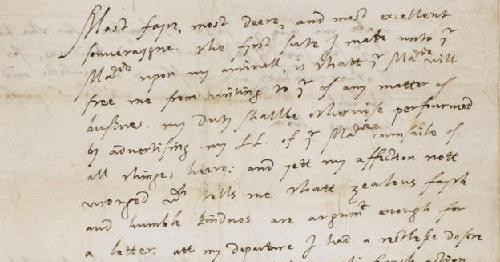 Most fayr, most deere, and most excellent
soveraygne. the first sute I make unto yr
Matie upon my arrivall, is thatt yr Matie will
free me from writing to yr of any matter of
busines. my duty shalbe otherwise performed
by advertising my LL. of yr Maties counsaile of
all thinges here: and yett my affection nott
wronged wch tells me thatt zealous fayth
and humble kindnes are argumt enough for
a letter. att my departure I had a restlesse desire